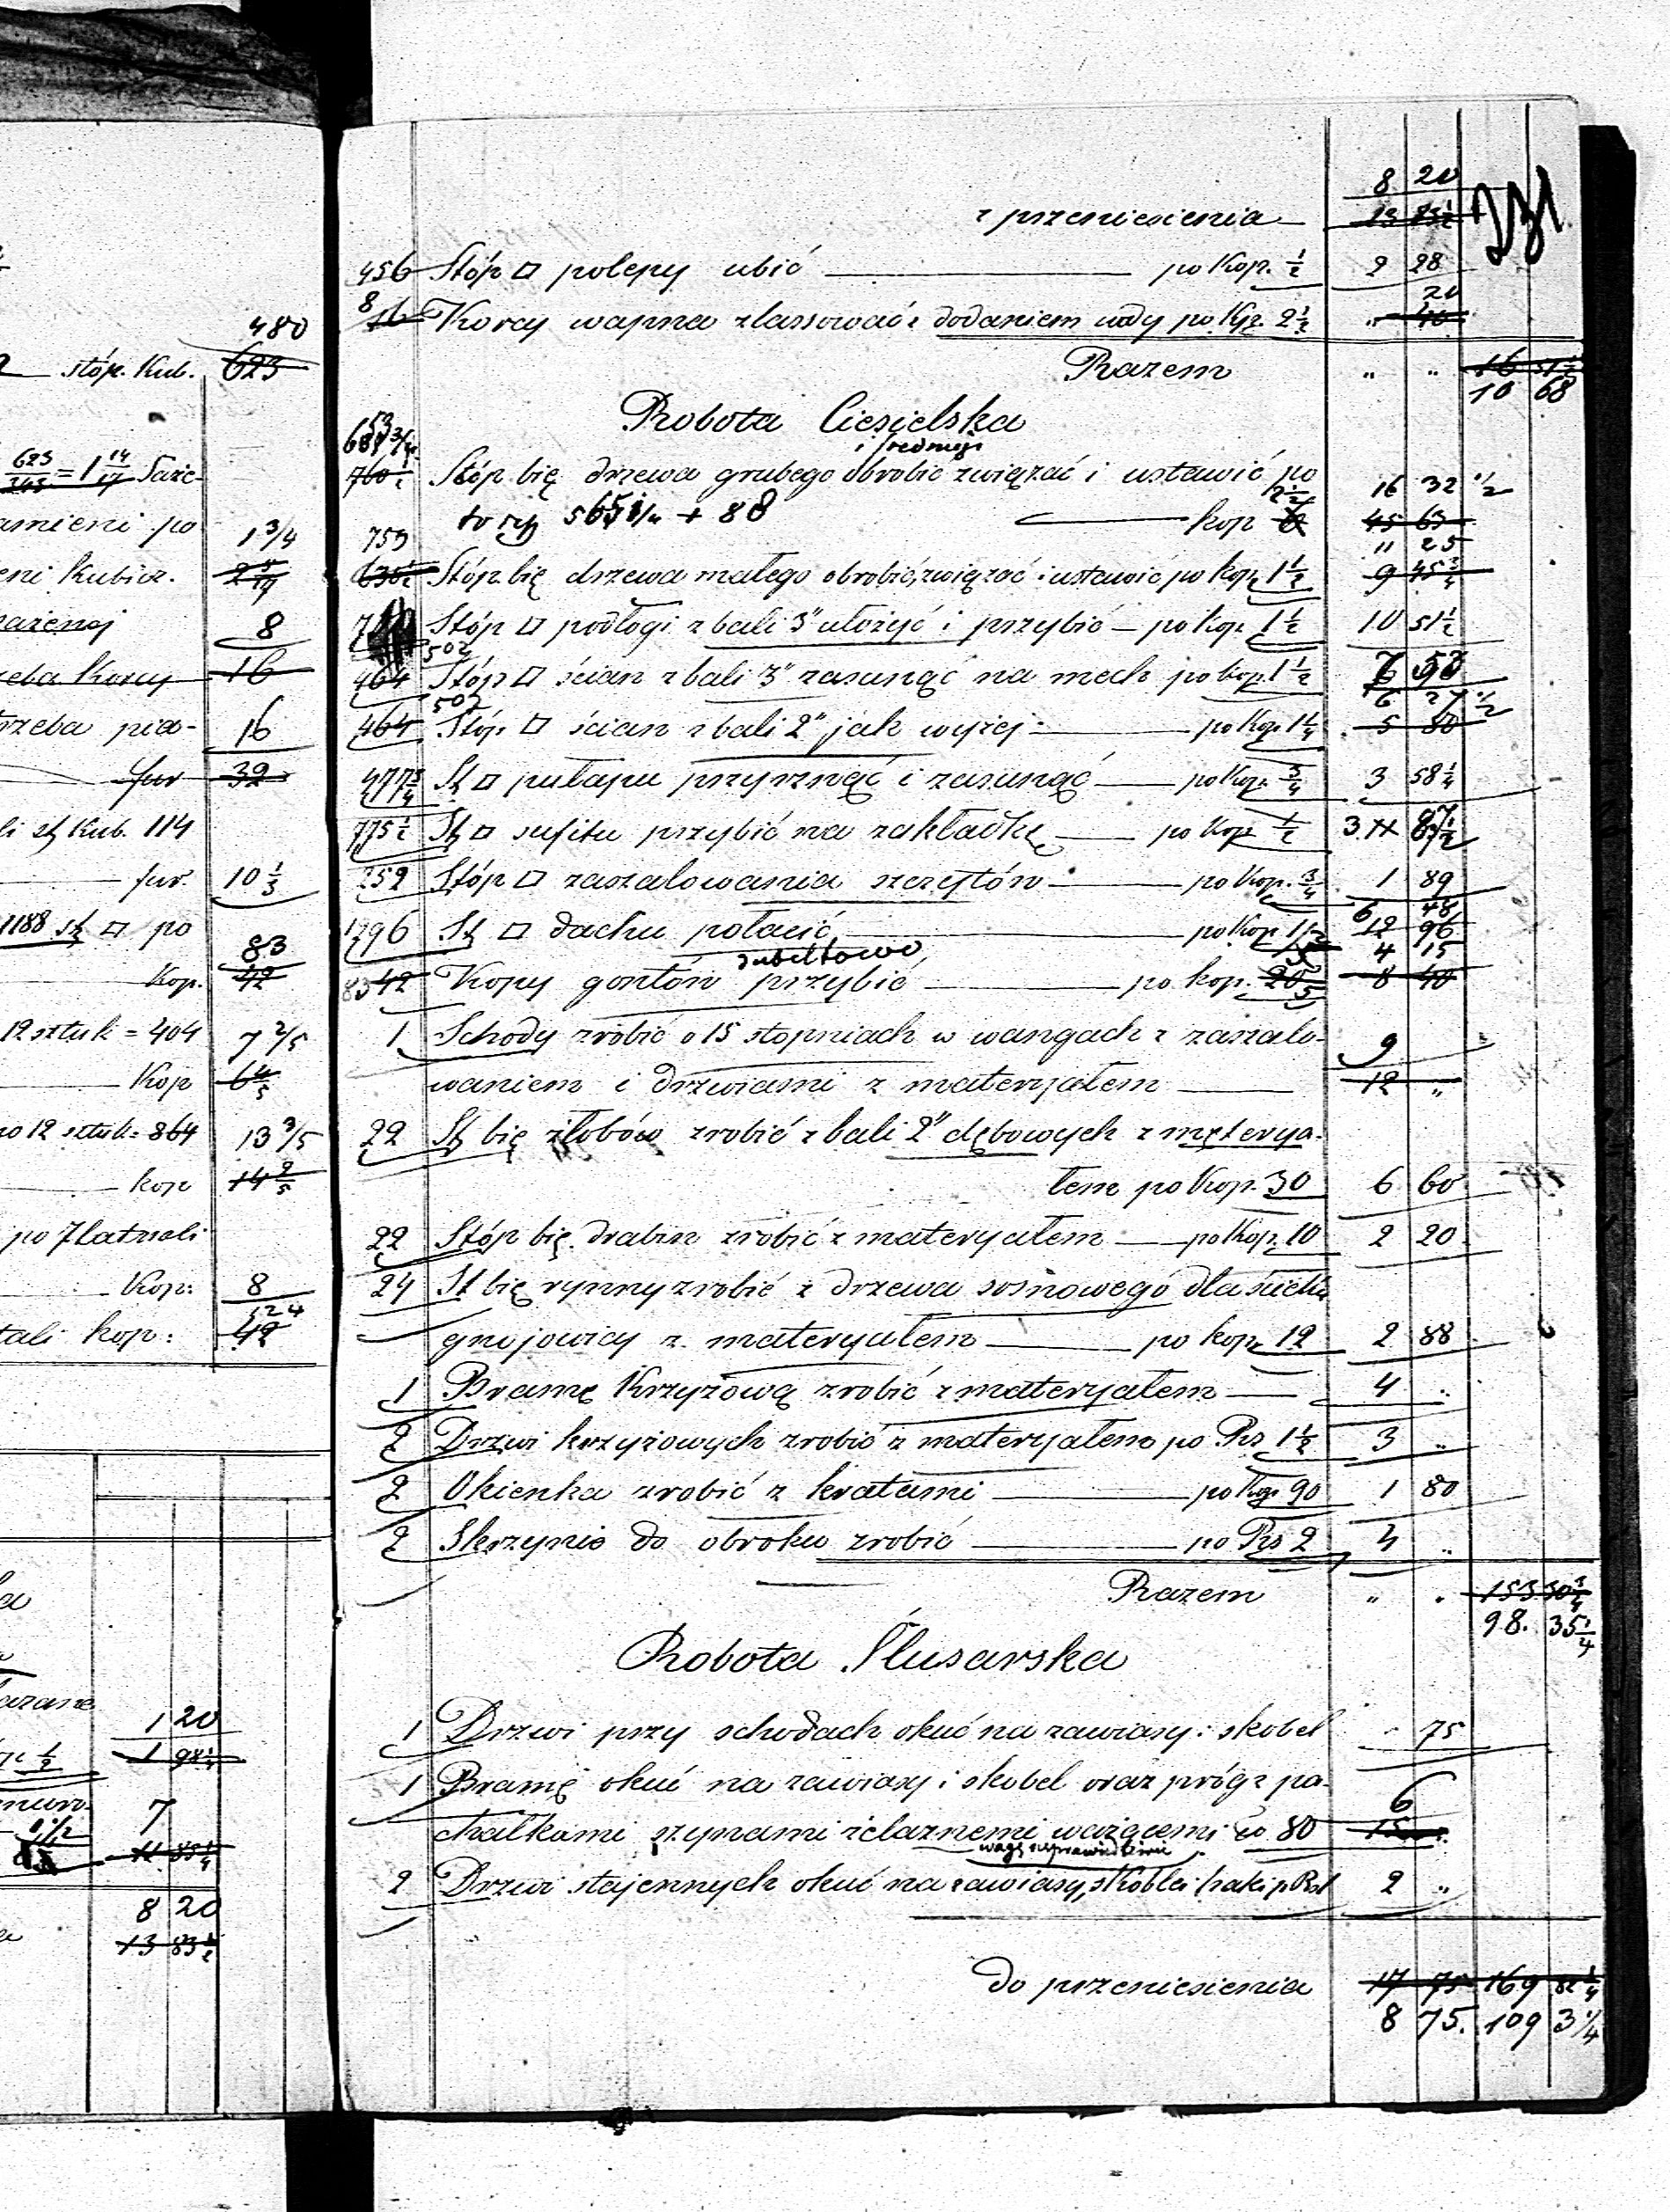 480
stóp. Kub. 623
623/343 = 1 14/17 Saże-
amieni po 1 3/4
eni Kubicz.
ażenaj 8
zeba Korcy 16
rzeba pia- 16
fur 32
li st Kub. 114
fur. 10 1/3
1188 st □ po 83
Kop. 42
12 sztuk = 404 7 2/5
Kop 6 4/5
no 12 sztuk = 864 13 3/5
kop 14 2/5
po 7 łat
Kop: 8
124
tali kop: 42
1 20
1 98 1/4
7
8 20
13 83 1/2
8 20
z przeniesienia 13 83 1/2
456 Stóp □ polepy ubić po Kop. 1/2 2 28
8 20
16 Korcy wapna zlassować z dodaniem wody po Kp. 2 1/2 " 40
Razem " " 16 51 1/2
10 68
Robota Ciesielska
653 3/4 i średniego
760 1/2 Stóp bię drzewa grubego obrobić związać i ustawić po 16 32 1/2
565 3/4 + 88 kop 6 2 1/2 45 63
753 11 25
636 1/2 Stóp bię drzewa małego obrobić, związać i ustawić po kop 1 1/2 9 45 3/4
Stóp □ podłogi z bali 3" ułożyć i przybić po Kop. 1 1/2 10 51 1/2
502 7 53
464 Stóp □ ścian z bali 3" zasunąć na mech po kop. 1 1/2 6 96
502 6 27 1/2
464 Stóp. □ ścian z bali 2" jak wyżej po Kop 1 1/4 5 80
477 3/4 St □ pułapu przyrznąć i zasunąć po Kop. 3/4 3 58 1/4
775 1/2 St □ sufitu przybić na zakładkę po Kop 1/2 3 87
252 Stóp □ zaszalowania szczytów po Kop. 3/4 1 89
6 48
1296 St □ dachu połacić po Kop 1/2 12 96
dubeltowo 4 15
83 42 Kopy gontów przybić po kop. 20 5 8 40
1 Schody zrobić o 15 stopniach w wangach z zaszalo- 9
waniem i drzwiami z materyałem 12 "
22 St bię żłobów zrobić z bali 2" dębowych z materya-
łem po Kop. 30 6 60
22 Stóp bię. drabin zrobić z materyałem po Kop 10 2 20
24 St bię rynny zrobić z drzewa sosnowego dla ścieku
gnojowicy z materyałem po kop 12 2 88
1 Bramę Krzyżową zrobić z materyałem 4 "
2 Drzwi krzyżowych zrobić z materyałem po Rs 1 1/2 3 "
2 Okienka zrobić z kratami po Kop 90 1 80
2 Skrzynie do obroku zrobić po Rs 2 4 "
Razem " " 153 30 3/4
98. 35 1/4
Robota Ślusarska
1 Drzwi przy schodach okuć na zawiasy i skobel " 75
1 Bramę okuć na zawiasy i skobel oraz próg z pa- 6
chałkami szynami żelaznemi ważącemi 80 15
2 Drzwi stajennych okuć na zawiasy, skoble i haki p Rs 1 2 "
do przeniesienia 17 75 169 82 1/4
8 75. 109 3 1/4